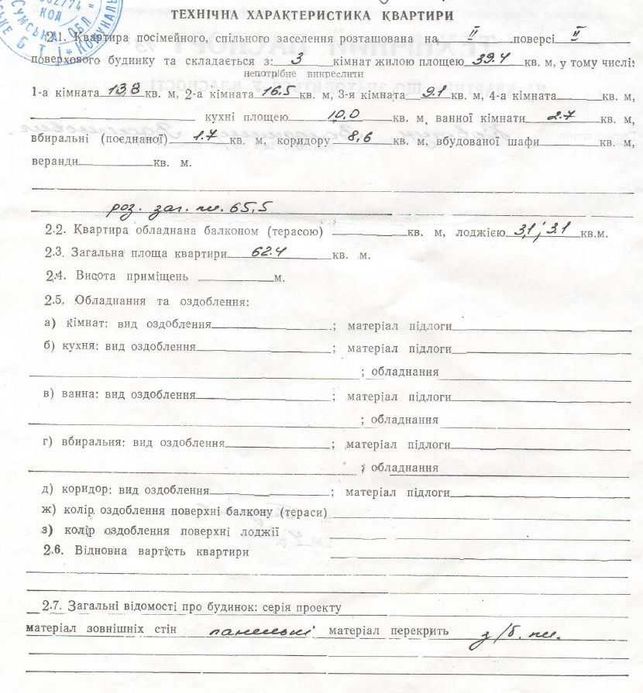 КОД
СУМСЬК ОБЛ
БТІ * КОМУНАЛЬ
ТЕХНІЧНА ХАРАКТЕРИСТИКА КВАРТИРИ
2.1. Квартира посімейного, спільного заселення розташована на II поверсі II
поверхового будинку та складається з: 3 кімнат жилою площею 39.4 кв. м, у тому числі:
непотрібне викреслити
1-а кімната 13.8 кв. м, 2-а кімната 16.5 кв. м, 3-я кімната 9.1 кв. м, 4-а кімната кв. м,
кухні площею 10,0 кв. м, ванної кімнати 2.7 кв. м,
вбиральні (поєднаної) 1.7 кв. м, коридору 8,6 кв. м, вбудованої шафи кв. м,
веранди кв. м.
роз. заг. пл. 65,5
2.2. Квартира обладнана балконом (терасою) кв. м, лоджією 3,1; 3.1 кв.м.
2.3. Загальна площа квартири 62.4 кв. м.
2.4. Висота приміщень м.
2.5. Обладнання та оздоблення:
а) кімнат: вид оздоблення ; матеріал підлоги
б) кухня: вид оздоблення ; матеріал підлоги
; обладнання
в) ванна: вид оздоблення ; матеріал підлоги
; обладнання
г) вбиральня: вид оздоблення ; матеріал підлоги
; обладнання
д) коридор: вид оздоблення ; матеріал підлоги
ж) колір оздоблення поверхні балкону (тераси)
з) колір оздоблення поверхні лоджії
2.6. Відновна вартість квартири
2.7. Загальні відомості про будинок: серія проекту
матеріал зовнішніх стін панельні матеріал перекрить з/б. пл.